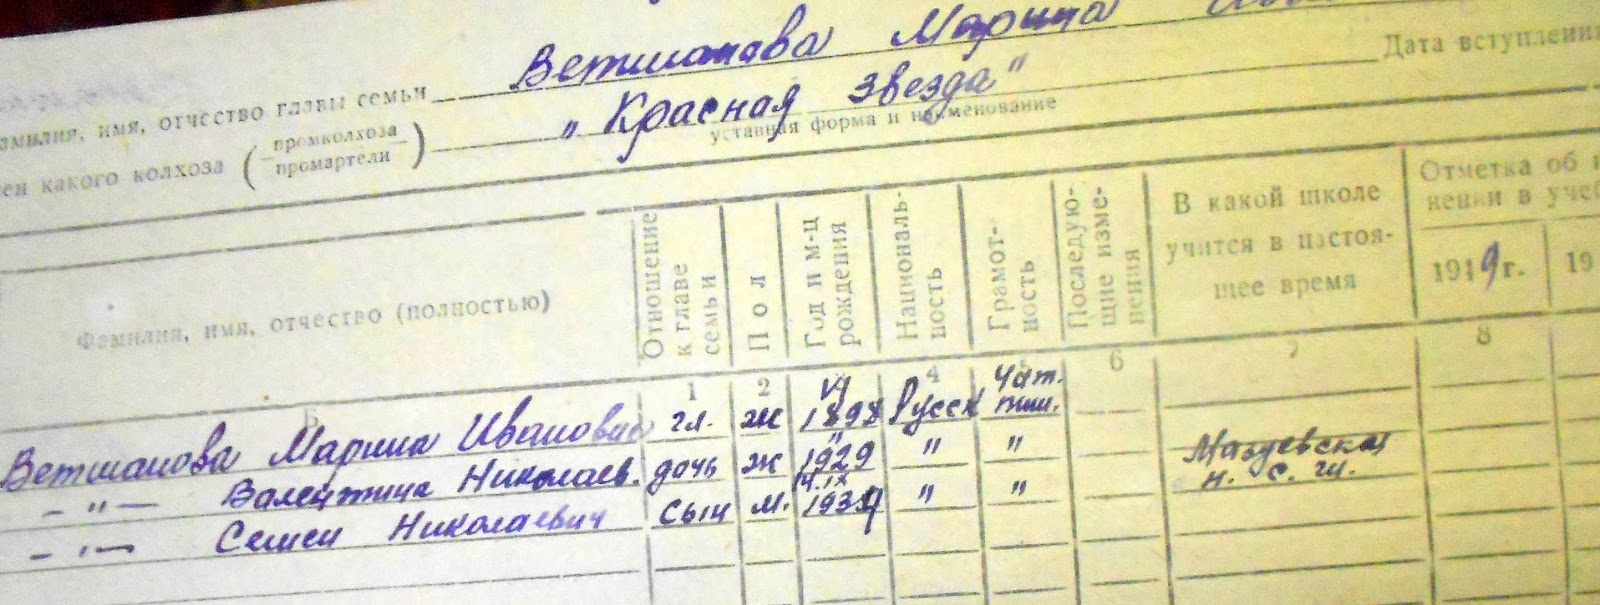 Ветшанова Марина
амилия, имя, отчество главы семьи
„Красная звезда"
уставная форма и наименование
Дата вступления
ен какого колхоза ( промколхоза
промартели )
Фамилия, имя, отчество (полностью)
Отношение к главе семьи
Пол
Год и м-ц рождения
Националь-ность
Грамот-ность
Последую-щие изме-нения
В какой школе учится в настоя-щее время
Отметка об
нении в учеб
1949 г.
19
Б 1 2 4 6 7 8
Ветшанова Марина Ивановна гл. Ж VI 1898 Русск Чит. пиш.
— " — Валентина Николаев. дочь Ж " 1929 " "
— " — Семен Николаевич сын М. 14.IX 1934 " " н. с. ш.